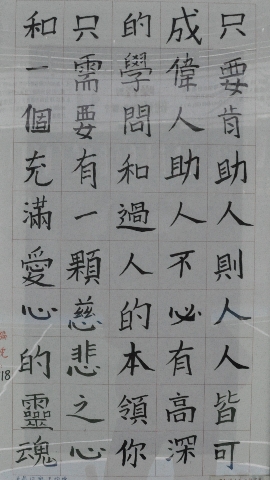 只要肯助人則人人皆可
成偉人助人不必有高深
的學問和過人的本領你
只需要有一顆慈悲之心
和一個充滿愛心的靈魂
18